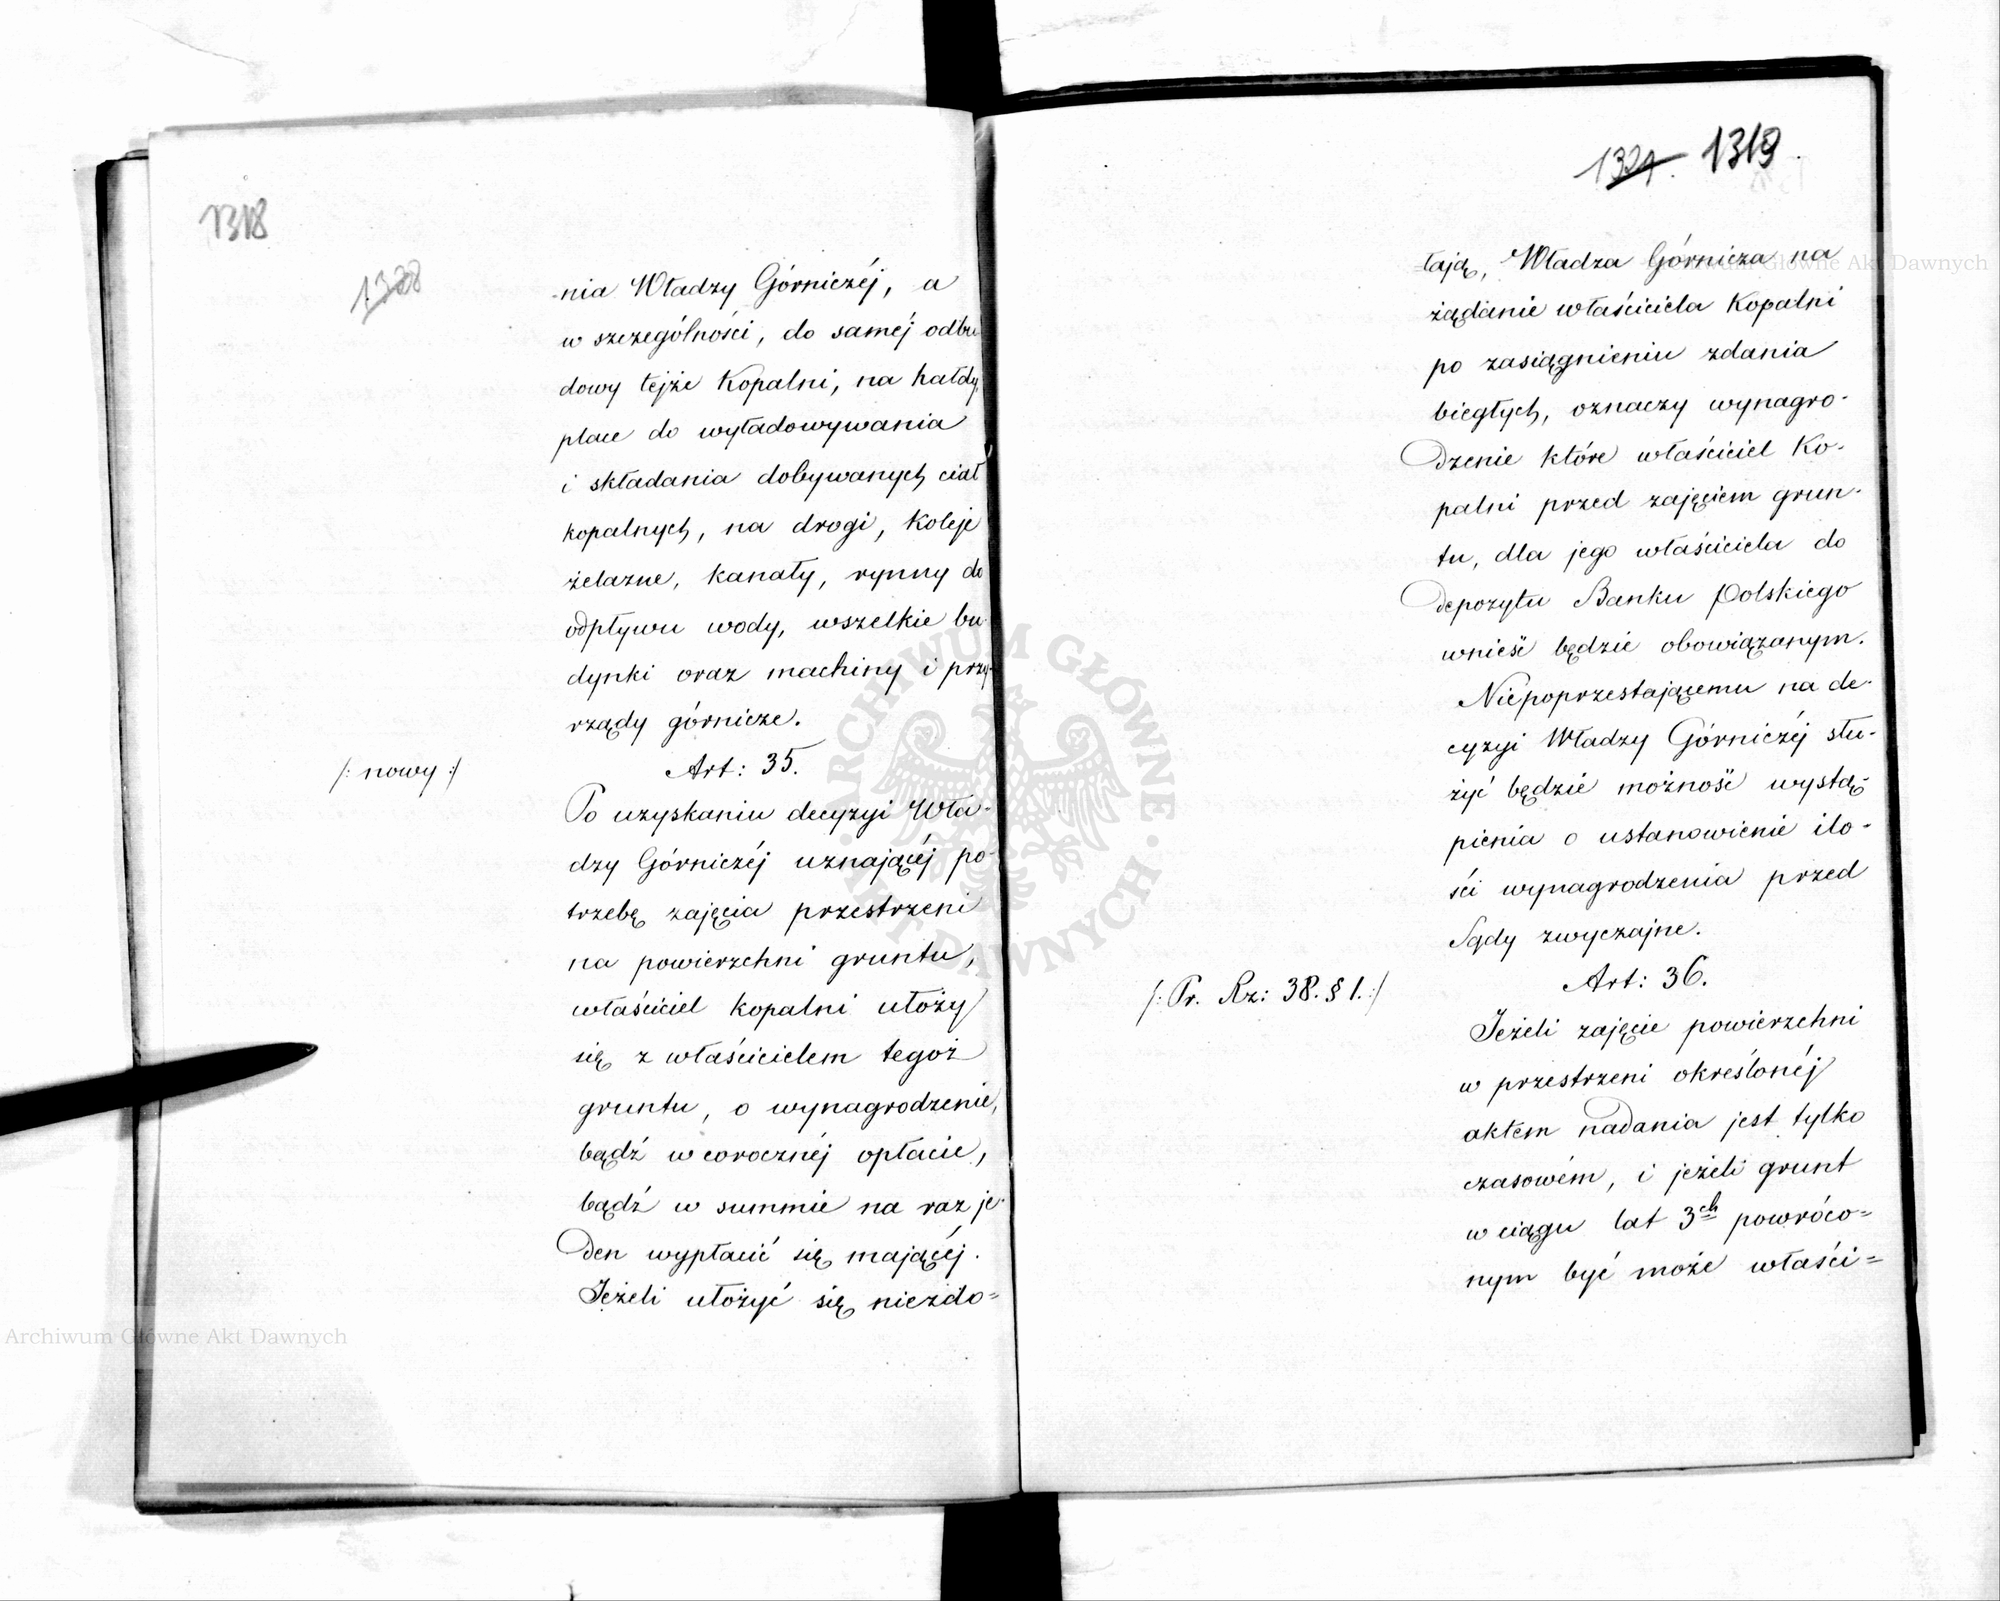 1318
1320
nia Władzy Górniczéj, a
w szczególności, do saméj odbu
dowy tejże Kopalni, na hałdy,
place do wyładowywania
i składania dobywanych ciał
kopalnych, na drogi, Koleje
żelazne, kanały, rynny do
odpływu wody, wszelkie bu-
dynki oraz machiny i przy-
rządy górnicze.
Art: 35.
/: nowy :/
Po uzyskaniu decyzyi Wła-
dzy Górniczéj uznającéj po-
trzebę zajęcia przestrzeni
na powierzchni gruntu,
właściciel kopalni ułoży
się z właścicielem tegoż
gruntu, o wynagrodzenie,
bądź w corocznéj opłacie,
bądź w summie na raz je-
den wypłacić się mającéj.
Jeżeli ułożyć się niezdo=
1321. 1319.
łają, Władza Górnicza na
żądanie właściciela Kopalni
po zasiągnieniu zdania
biegłych, oznaczy wynagro-
dzenie które właściciel Ko-
palni przed zajęciem grun-
tu, dla jego właściciela do
depozytu Banku Polskiego
wnieść będzie obowiązanym.
Niepoprzestającemu na de-
cyzyi Władzy Górniczéj słu-
żyć będzie możność wystą-
pienia o ustanowienie ilo-
ści wynagrodzenia przed
Sądy zwyczajne.
Art: 36.
/: Pr. Rz: 38. § 1. :/
Jeżeli zajęcie powierzchni
w przestrzeni określonéj
aktem nadania jest tylko
czasowém, i jeżeli grunt
w ciągu lat 3ch powróco=
nym być może właści=
Archiwum Główne Akt Dawnych
Archiwum Główne Akt Dawnych
ARCHIWUM GŁÓWNE · AKT DAWNYCH ·